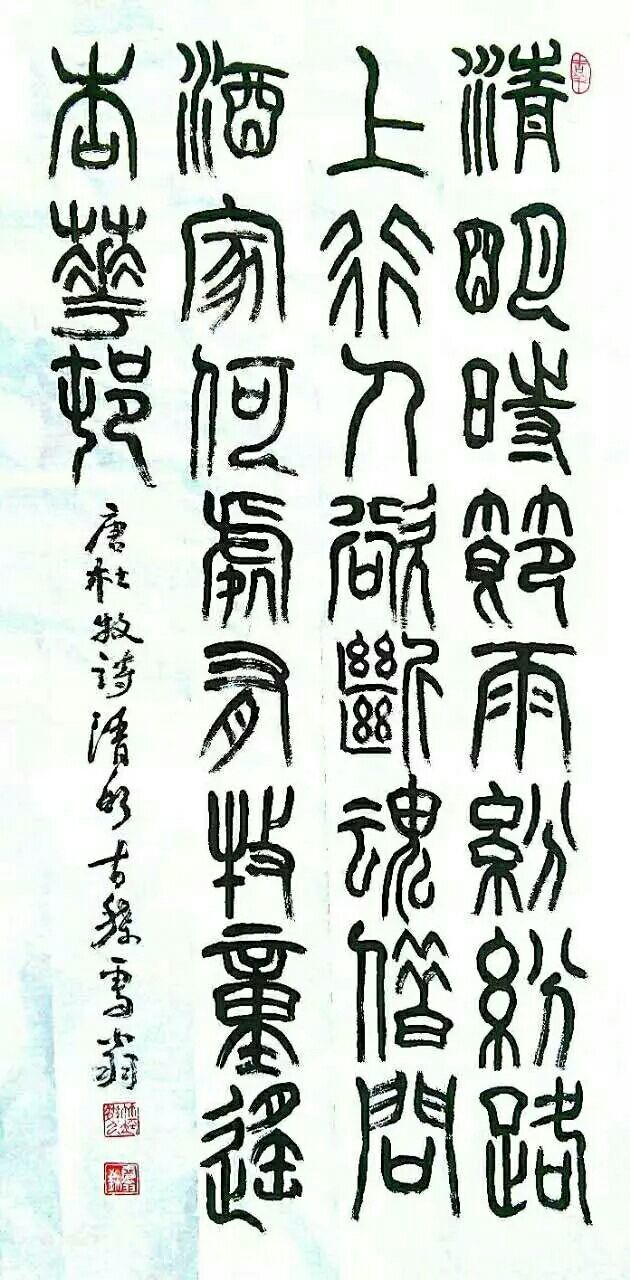 清明時節雨紛紛路
上行人欲斷魂借問
酒家何處有牧童遙
杏華邨
唐杜牧詩清明古滕雪翁